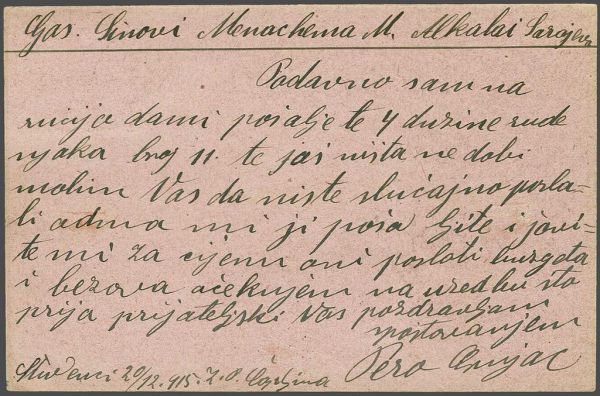 Gos. Sinovi Menachema M. Alkalai Sarajevo
Podavno sam na
rucijo dami pošalje te 4 duzine rude
njaka broj 11. te još ništa ne dobi
molim Vas da niste slučajno posla-
li odma mi ji poša ljite i javi-
te mi za cijem oni posloti
i bezova očekujem na uredbu što
prija prijateljski Vas pozdravljam
spostovanjem
Studenci 20/12. 915. Pero